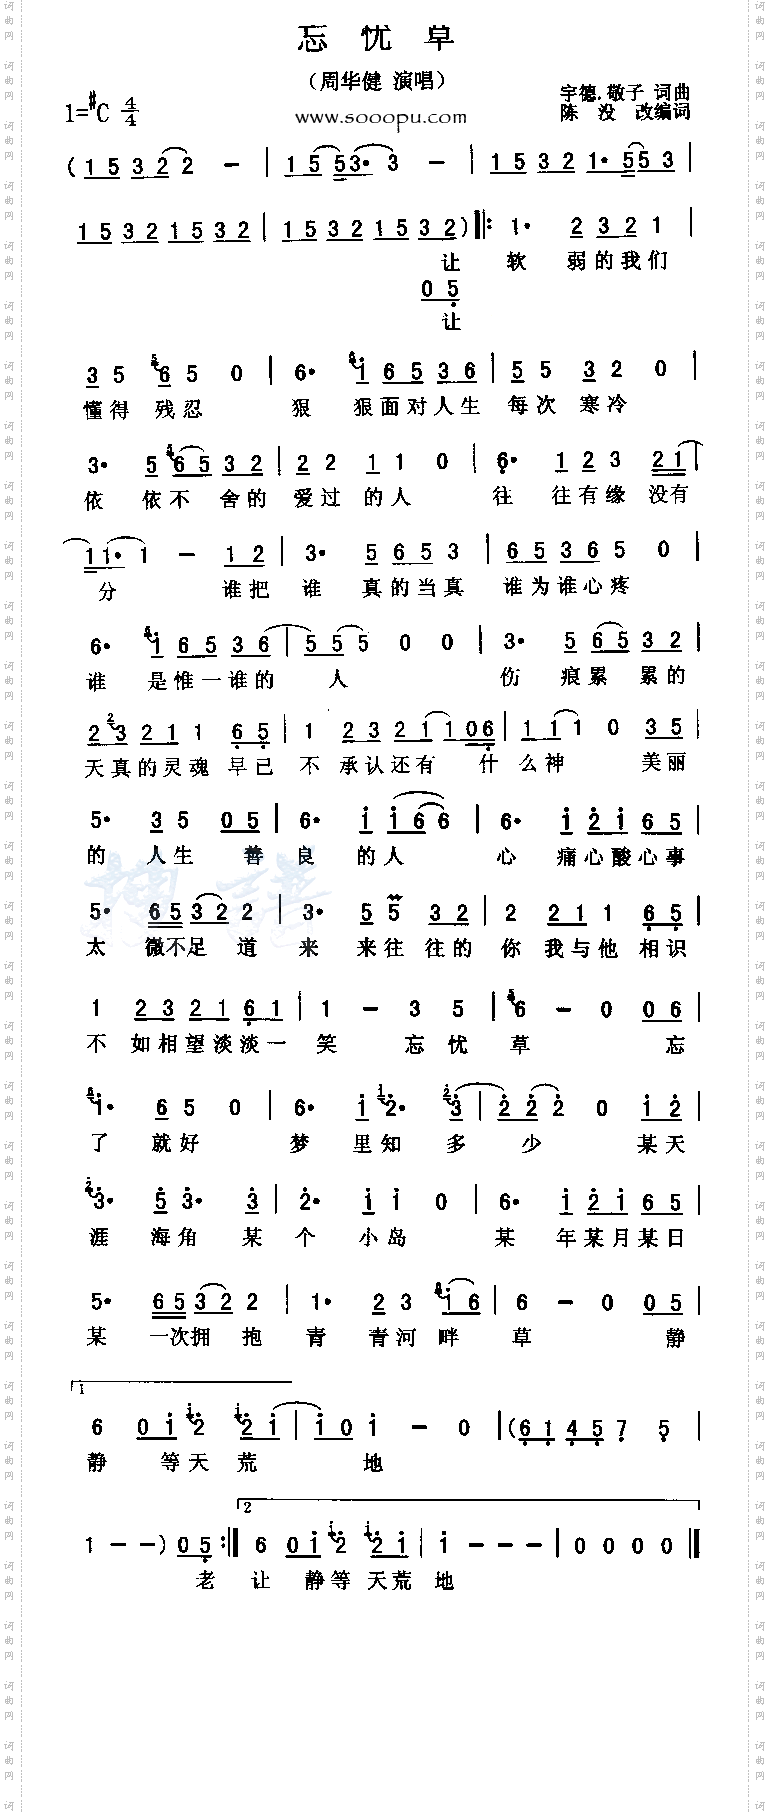 忘忧草
（周华健 演唱）
宇德.敬子 词曲
1=#C 4/4
陈没 改编词
www.sooopu.com
( 1 5 3 2 2 - | 1 5 5 3· 3 - | 1 5 3 2 1· 5 5 3 |
1 5 3 2 1 5 3 2 | 1 5 3 2 1 5 3 2 ) ‖: 1· 2 3 2 1
让 软 弱的我们
0 5
让
3 5 6 6 5 0 | 6· 6 1 6 5 3 6 | 5 5 3 2 0 |
懂得 残忍 狠 狠面对人生 每次 寒冷
3· 5 6 5 3 2 | 2 2 1 1 0 | 6· 1 2 3 2 1 |
依 依不 舍的 爱过 的人 往 往有缘 没有
1 1· 1 - 1 2 | 3· 5 6 5 3 | 6 5 3 6 5 0 |
分 谁把 谁 真的当真 谁为谁心疼
6· 6 1 6 5 3 6 | 5 5 5 0 0 | 3· 5 6 5 3 2 |
谁 是惟一谁的 人 伤 痕累 累的
2 2 3 2 1 1 6 5 | 1 2 3 2 1 1 0 6 | 1 1 1 0 3 5 |
天真的灵魂 早已 不 承认还有 什么神 美丽
5· 3 5 0 5 | 6· 1 1 6 6 | 6· 1 2 1 6 5 |
的 人生 善 良 的人 心 痛心酸心事
5· 6 5 3 2 2 | 3· 5 5 3 2 | 2 2 1 1 6 5 |
太 微不足 道 来 来往 往的 你 我与他 相识
1 2 3 2 1 6 1 | 1 - 3 5 | 5 6 - 0 0 6 |
不 如相望淡淡一 笑 忘忧 草 忘
6 1· 6 5 0 | 6· 1 1 2· 2 3 | 2 2 2 0 1 2 |
了 就好 梦 里知 多 少 某天
2 3· 5 3· 3 | 2· 1 1 0 | 6· 1 2 1 6 5 |
涯 海角 某 个 小岛 某 年某月某日
5· 6 5 3 2 2 | 1· 2 3 6 1 6 | 6 - 0 0 5 |
某 一次拥 抱 青 青河 畔 草 静
1
6 0 1 1 2 1 2 1 | 1 0 1 - 0 | ( 6 1 4 5 7 5 |
静 等天 荒 地
2
1 - - ) 0 5 :‖ 6 0 1 1 2 1 2 1 | 1 - - - | 0 0 0 0 ‖
老 让 静等 天荒 地